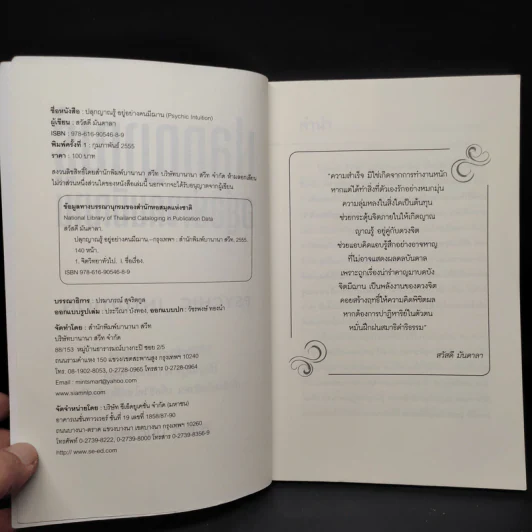 ชื่อหนังสือ : ปลุกญาณรู้ อยู่อย่างคนมีฌาน (Psychic Intuition)
ผู้เขียน : สวัสดี มันตาลา
ISBN : 978-616-90546-8-9
พิมพ์ครั้งที่ 1 : กุมภาพันธ์ 2555
ราคา : 100 บาท
สงวนลิขสิทธิ์โดยสำนักพิมพ์บานานา สวีท บริษัทบานานา สวีท จำกัด ห้ามลอกเลียน
ไม่ว่าส่วนหนึ่งส่วนใดของหนังสือเล่มนี้ นอกจากจะได้รับอนุญาตจากผู้เขียน
ข้อมูลทางบรรณานุกรมของสำนักหอสมุดแห่งชาติ
National Library of Thailand Cataloging in Publication Data
สวัสดี มันตาลา.
ปลุกญาณรู้ อยู่อย่างคนมีฌาน.--กรุงเทพฯ : สำนักพิมพ์บานานา สวีท, 2555.
140 หน้า.
1. จิตวิทยาทั่วไป. I. ชื่อเรื่อง.
ISBN 978-616-90546-8-9
บรรณาธิการ : ปรมาภรณ์ สุจริตกูล
ออกแบบรูปเล่ม : ประวีณา บังทอง, ออกแบบปก : วัชรพงษ์
จัดทำโดย : สำนักพิมพ์บานานา สวีท
บริษัทบานานา สวีท จำกัด
88/153 หมู่บ้านอาราบางกะปิ ซอย 2/5
ถนนรามคำแหง 150 แขวง/เขตสะพานสูง กรุงเทพฯ 10240
โทร. 08-1902-8053, 0-2728-0965 โทรสาร 0-2728-0964
Email : mintsmart@yahoo.com
www.siamnlp.com
จัดจำหน่ายโดย : บริษัท ซีเอ็ดยูเคชั่น จำกัด (มหาชน)
อาคารเนชั่นทาวเวอร์ ชั้นที่ 19 เลขที่ 1858/87-90
ถนนบางนา-ตราด แขวงบางนา เขตบางนา กรุงเทพฯ 10260
โทรศัพท์ 0-2739-8222, 0-2739-8000 โทรสาร 0-2739-8356-9
http:// www.se-ed.com
"ความสำเร็จ มิใช่เกิดจากการทำงานหนัก
หากแต่ได้ทำสิ่งที่ตัวเองรักอย่างหมกมุ่น
ความลุ่มหลงในสิ่งใดเป็นต้นทุน
ช่วยกระตุ้นจิตภายในให้เกิดญาณ
ญาณรู้ อยู่คู่กับดวงจิต
ช่วยแอบคิดแอบรู้สึกอย่างอาจหาญ
ที่ไม่อาจแสดงผลดลบันดาล
เพราะถูกเรื่องน่ารำคาญมาบดบัง
จิตมีฌาน เป็นพลังงานของดวงจิต
คอยสร้างฤทธิ์ให้ความคิดพิชิตผล
หากต้องการปาฏิหาริย์ในตัวตน
หมั่นฝึกฝนสมาธิดำริธรรม"
สวัสดี มันตาลา